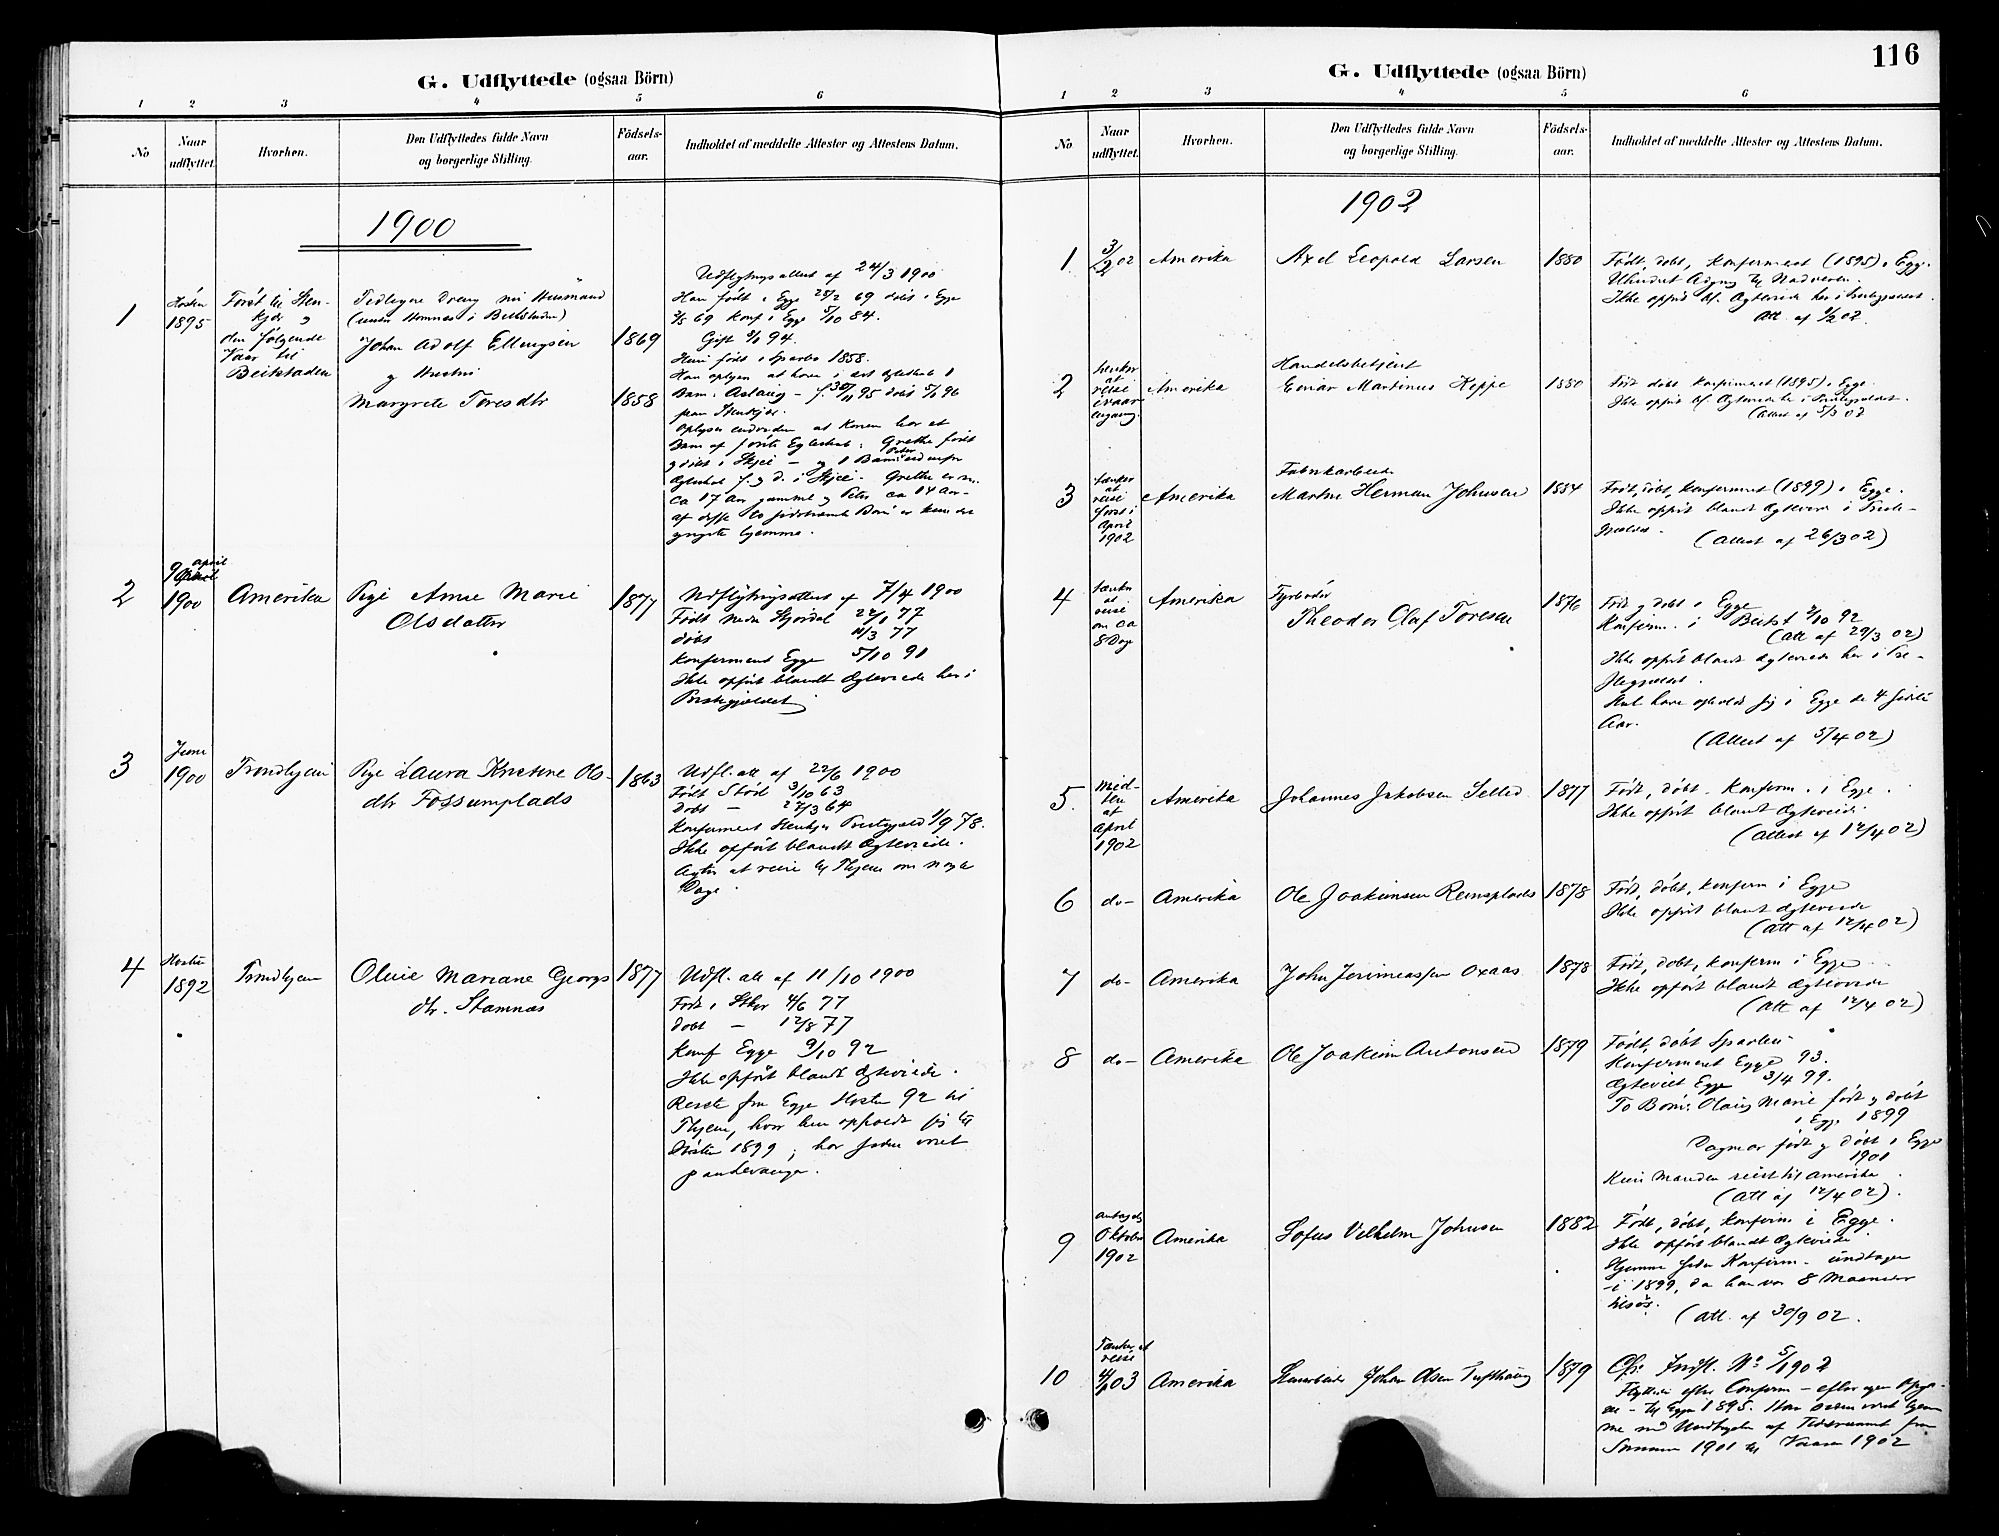 G. Udflyttede (ogsaa Börn)
1 2 3 4 5 6
No
Naar udflyttet.
Hvorhen.
Den Udflyttedes fulde Navn
og borgerlige Stilling.
Födsels-
aar.
Indholdet af meddelte Attester og Attestens Datum.
1900
1
Høsten
1895
Først til Sten-
kjær og
den følgende
Vaar til
Beitstaden
Johan Adolf Ellingsen
og Hustru
Margrete Toresdtr
1869
1858
Udflytngsattest af 24/3 1900
Han født i Egge 28/2 69 døbt i Egge
69 Konf i Egge 5/10 84.
Gift 94.
født i Sparbo 1858.
Han oplyser at have i det Egteskab 1
Barn: Aslaug - f. 30/11 95 døbt 5/1 96
fra Stenkjær.
Oplyser endvidere at Konen har et
Barn af første Egteskab: Grethe født
og døbt i Skjei - og 1 Barn Peter udenfor
Egteskab f. og d. i Skjei. Grethe er nu
ca 17 Aar gammel og Peter ca 14 Aar -
af disse to sidstnævnte Børn er kun det
yngste hjemme.
2
9 april
1900
Amerika
Pige Anne Marie
Olsdatter
1877
Udflytngsattest af 7/4 1900
Født nedre Stjørdal 22/1 77
døbt 11/3 77
Konfirmeret Egge 5/10 91
Ikke opført blandt Ægteviede her i
Prestegjeldet
3
Juni
1900
Trondhjem
Pige Laura Kristine Ols-
dtr Fossumplads
1863
Udfl. att af 22/6 1900
Født Stod 3/10 63
Døbt - 27/3 64
Konfirmeret Stenkjær Prestegjeld 1/9 78.
Ikke opført blandt Ægteviede.
Agter at reise til Thjem om nogle
Dage.
4
Høsten
1892
Trondhjem
Oluie Mariane Georgs
dtr. Stamnæs
1877
Udfl. att af 11/10 1900
Født i Stkjær 4/6 77
døbt - 12/8 77
Konf Egge 9/10 92
Ikke opført blandt Ægteviede.
Reiste fra Egge Høsten 92 til
Thjem, hvor hun opholdt sig til
Høsten 1899; har siden været
paa
116
G. Udflyttede (ogsaa Börn)
1 2 3 4 5 6
No
Naar udflyttet.
Hvorhen.
Den Udflyttedes fulde Navn
og borgerlige Stilling.
Födsels-
aar.
Indholdet af meddelte Attester og Attestens Datum.
1902
1
3/2 02
Amerika
Axel Leopold Larsen
1880
Født, døbt, Konfirmeret (1895) i Egge.
Uhindret Adgng til Nadveren.
Ikke opført bl. Ægteviede her i Prestegjeldet.
Att. af 1/2 02.
2
tænker
at
reise
Amerika
Handelsbetjent
Einar Martinus Keppe
1880
Født døbt Konfirmeret (1895) i Egge.
Ikke opført bl Ægteviede i Prestegjeldet.
(Attest af 5/3 02
3
tænker
at
reise
først i
April
1902
Amerika
Fabrikarbeider
Martin Herman Johnsen
1884
Født, døbt, Konfirmeret (1899) i Egge.
Ikke opført blandt Ægteviede i Preste-
gjeldet.
(Attest af 26/3 02)
4
tænker
at
reise
om ca
8 Dage
Amerika
Fyrbøder
Theodor Olaf Toresen
1876
Født og døbt i Egge
Konfirm. i Beitst 2/10 92
(Att af 29/3 02)
Ikke opført blandt Ægteviede her i Pre-
stegjeldet.
Skal have opholdt sig i Egge de 4 sidste
Aar.
(Attest af 5/4 02)
5.
Mid-
ten
af
April
1902
Amerika
Johannes Jakobsen Selled
1877
Født, døbt. Konfirm. i Egge.
Ikke opført blandt Ægteviede.
(Attest af 12/4 02)
6
do-
Amerika
Ole Joakimsen Reinsplads
1878
Født, døbt, Konfirm i Egge
Ikke opført blandt Ægteviede
(Att af 12/4 02)
7
do-
Amerika
John Jerimeassen Oxaas
1878
Født, døbt, Konfirm i Egge
Ikke opført blandt Ægteviede
(Att af 12/4 02)
8
do-
Amerika
Ole Joakim Antonsen
1879
Født, døbt Sparbu
Konfirmeret Egge 93.
Ægteviet Egge 3/4 99.
To Børn: Olaug Marie født og døbt
i Egge 1899
Dagmar født og døbt i Egge
1901
Kun Manden reist til Amerika.
(Att af 12/4 02).
9
Oktober
1902
Amerika
Sofus Vilhelm Johnsen
1882
Født, døbt, Konfirm i Egge.
Ikke opført blandt Ægteviede.
Hjemme siden Konfirm. undtagen
i 1899, da han var 8 Maaneder
tilsøs.
(Att. af 30/9 02.
10
Tænker at
reise
03
Amerika
Johan Olsen Tufthaug
1879
Indfl. No 5/1902
Flyttede efter Confirm - efter egen
- til Egge 1895. Har siden været hjem
me med Undtagelse af Tidsrummet fra
Sommeren 1901 til Vaaren 1902